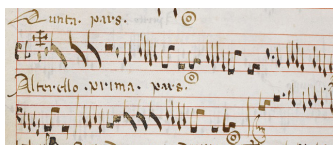 Quinta . pars .
Alterello . prima . pars .